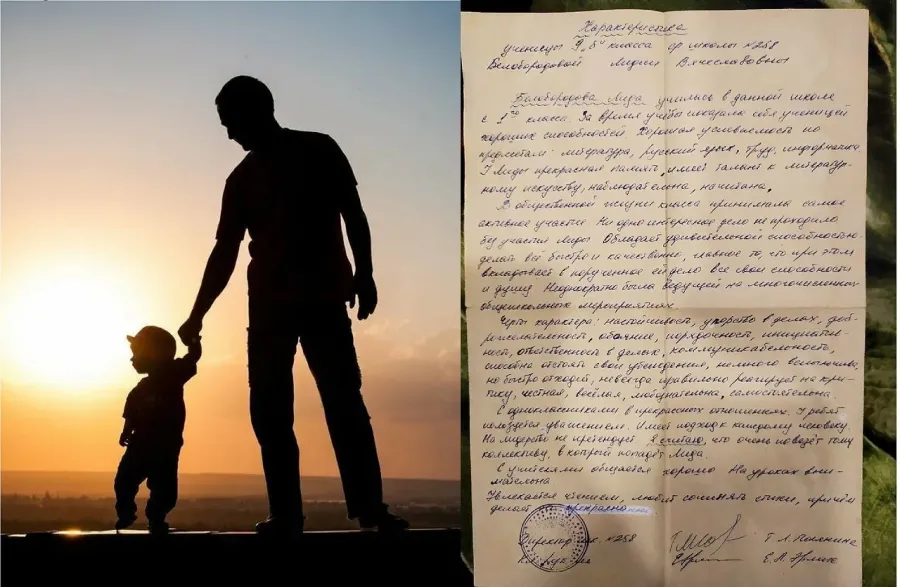 Характеристика
ученицы 9 „б" класса ср школы №258
Белобородовой Лидии Вячеславовны
Белобородова Лида училась в данной школе
с 1го класса. За время учёбы показала себя ученицей
хороших способностей. Хорошая успеваемость по
предметам: литература, русский язык, труд, информатика.
У Лиды прекрасная память, имеет талант к литератур-
ному искусству, наблюдательна, начитана.
В общественной жизни класса принимала самое
активное участие. Ни одно интересное дело не проходило
без участия Лиды. Обладает удивительной способностью-
делать всё быстро и качественно, главное то, что при этом
вкладывает в порученное ей дело все свои способности
и душу. Неоднократно была ведущей на многочисленных
общешкольных мероприятиях.
Черты характера: настойчивость, упорство в делах, доб-
рожелательность, обаяние, порядочность, инициатив-
ность, ответственность в делах, коммуникабельность,
способна отстоять свои убеждения, немного вспыльчива,
но быстро отходит, не всегда правильно реагирует на кри-
тику, честная, весёлая, любознательна, самостоятельна.
С одноклассниками в прекрасных отношениях. У ребят
пользуется уважением. Имеет подход к каждому человеку.
На лидерство не претендует. Я считаю, что очень повезёт тому
коллективу, в который попадёт Лида.
С учителями общается хорошо. На уроках вни-
мательна
Увлекается чтением, любит сочинять стихи, причём
делает прекрасно
Директор шк. №258
Т. Л.
Кл. рук-ль
Е. А.